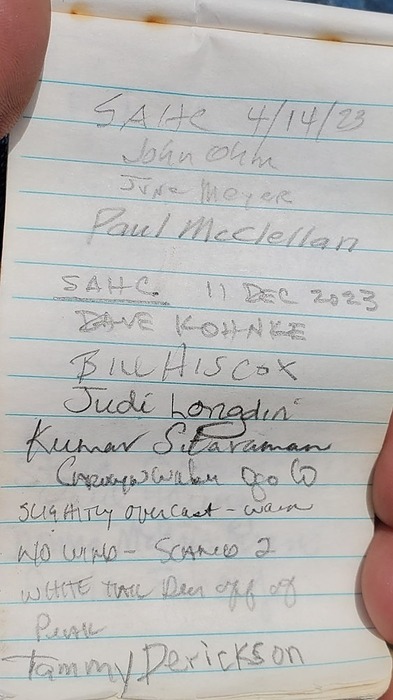 SAHC 4/14/23
John Ohm
June Meyer
Paul McClellan
SAHC 11 DEC 2023
DAVE KOHNKE
BILL HISCOX
Judi Longdin
Kumar Sitaraman
SLIGHTLY overcast - warm
NO WIND - SCARED 2
WHITE TAIL Deer off of
PEAK
Tammy Derickson